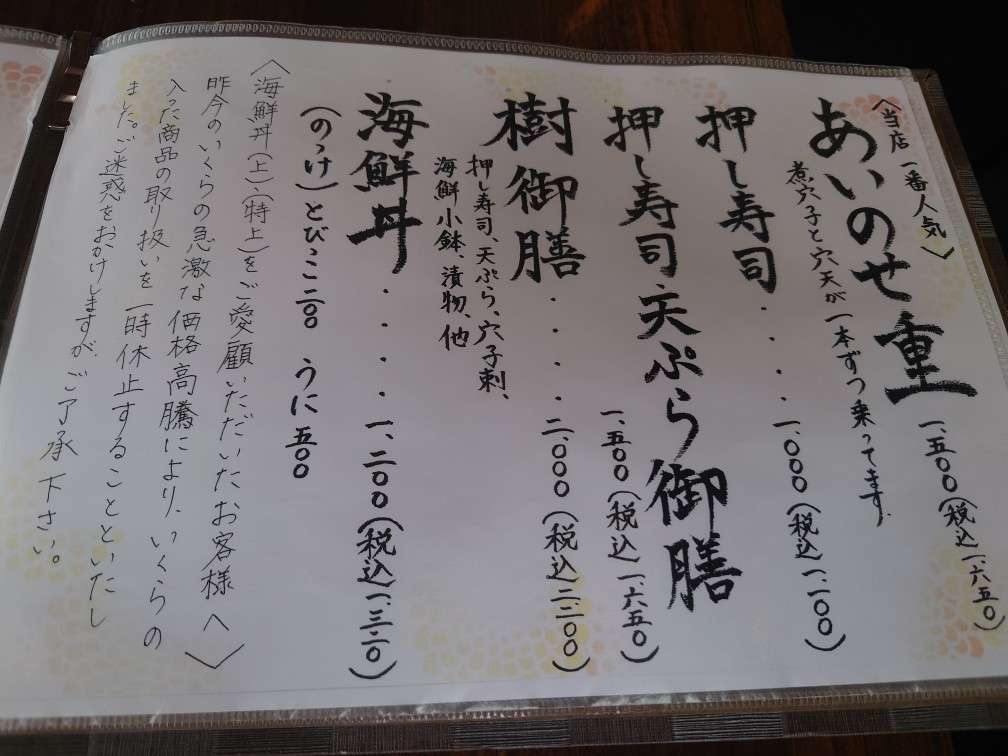 〈当店一番人気〉
あいのせ重
一、五〇〇(税込一、六五〇)
煮穴子と穴天が一本ずつ乗ってます。
押し寿司・・・一、〇〇〇(税込一、一〇〇)
押し寿司天ぷら御膳
一、五〇〇(税込一、六五〇)
樹御膳・・・・二、〇〇〇(税込二、二〇〇)
押し寿司、天ぷら、穴子刺、
海鮮小鉢、漬物、他
海鮮丼・・・・一、二〇〇(税込一、三二〇)
(のっけ)とびっこ二〇〇 うに五〇〇
〈海鮮丼(上)、(特上)をご愛顧いただいたお客様へ〉
昨今のいくらの急激な価格高騰により、いくらの
入った商品の取り扱いを一時休止することといたし
ました。ご迷惑をおかけしますが、ご了承下さい。